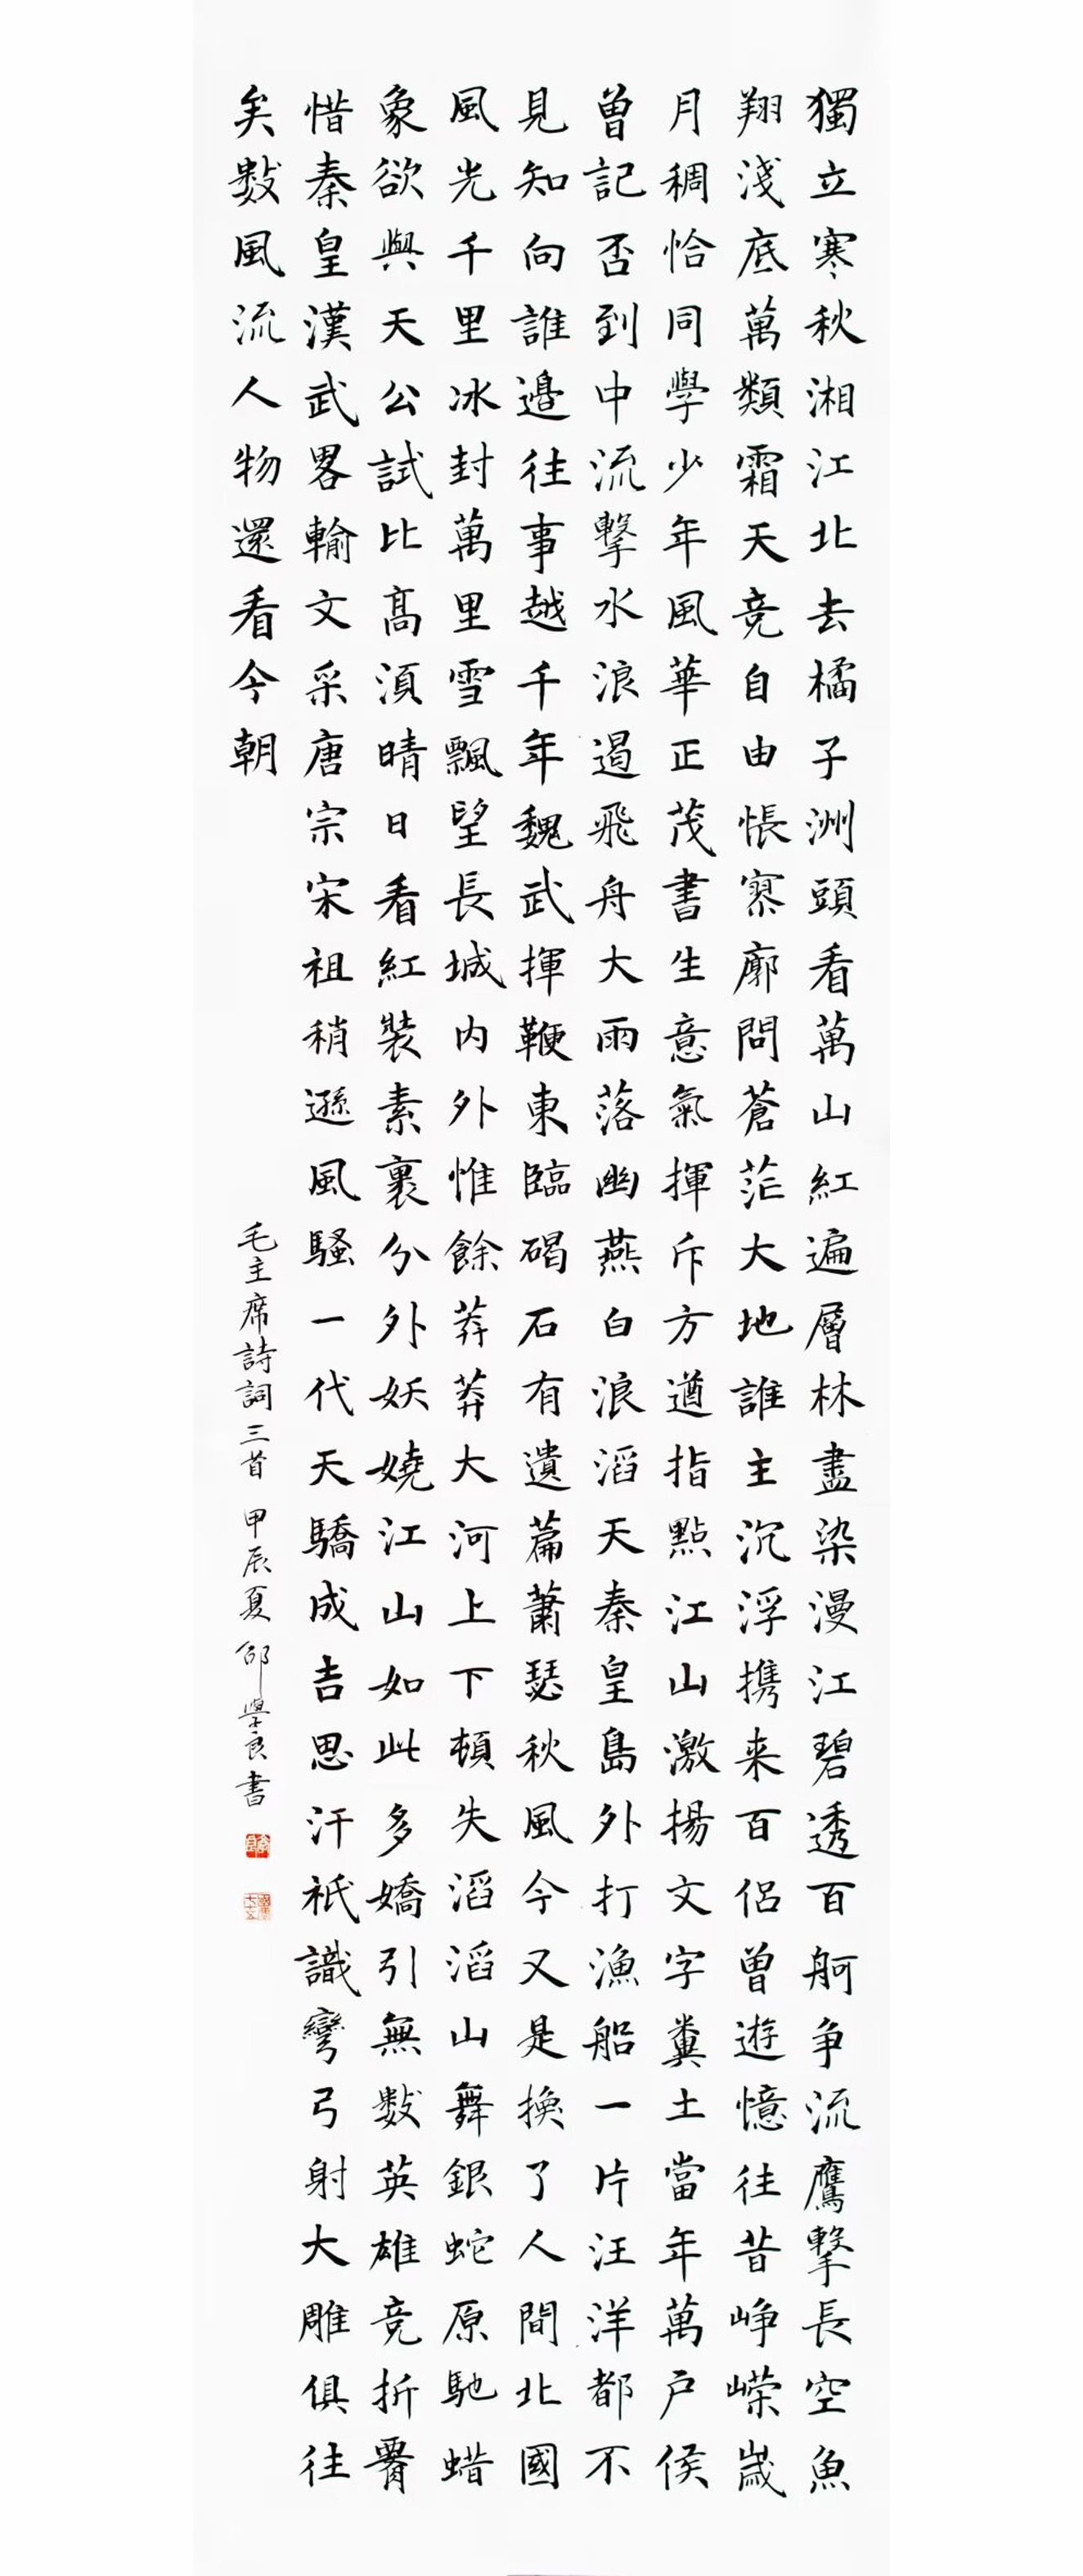 獨立寒秋湘江北去橘子洲頭看萬山紅遍層林盡染漫江碧透百舸争流鷹擊長空魚
翔淺底萬類霜天竞自由悵寥廓問蒼茫大地誰主沉浮携来百侣曾遊憶往昔峥嵘嵗
月稠恰同學少年風華正茂書生意氣揮斥方遒指點江山激揚文字糞土當年萬户侯
曾記否到中流擊水浪遏飛舟大雨落幽燕白浪滔天秦皇島外打漁船一片汪洋都不
見知向誰邊往事越千年魏武揮鞭東臨碣石有遺篇蕭瑟秋風今又是换了人間北國
風光千里冰封萬里雪飄望長城内外惟餘莽莽大河上下頓失滔滔山舞銀蛇原馳蜡
象欲與天公試比髙須晴日看紅裝素裹分外妖嬈江山如此多嬌引無數英雄竞折腰
惜秦皇漢武畧輸文采唐宗宋祖稍遜風騷一代天驕成吉思汗祇識彎弓射大雕俱往
矣數風流人物還看今朝
毛主席詩詞三首 甲辰夏 邵學良書